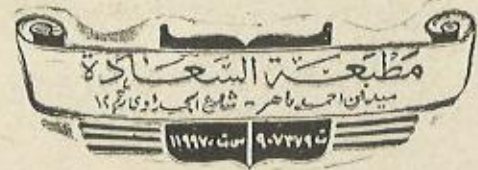 مطبعة السعادة
ميدان احمد ماهر - شارع الجداوى رقم ١٢
ت ٩٠٧٣٧٩ س.ت ١١٩٩٧٠